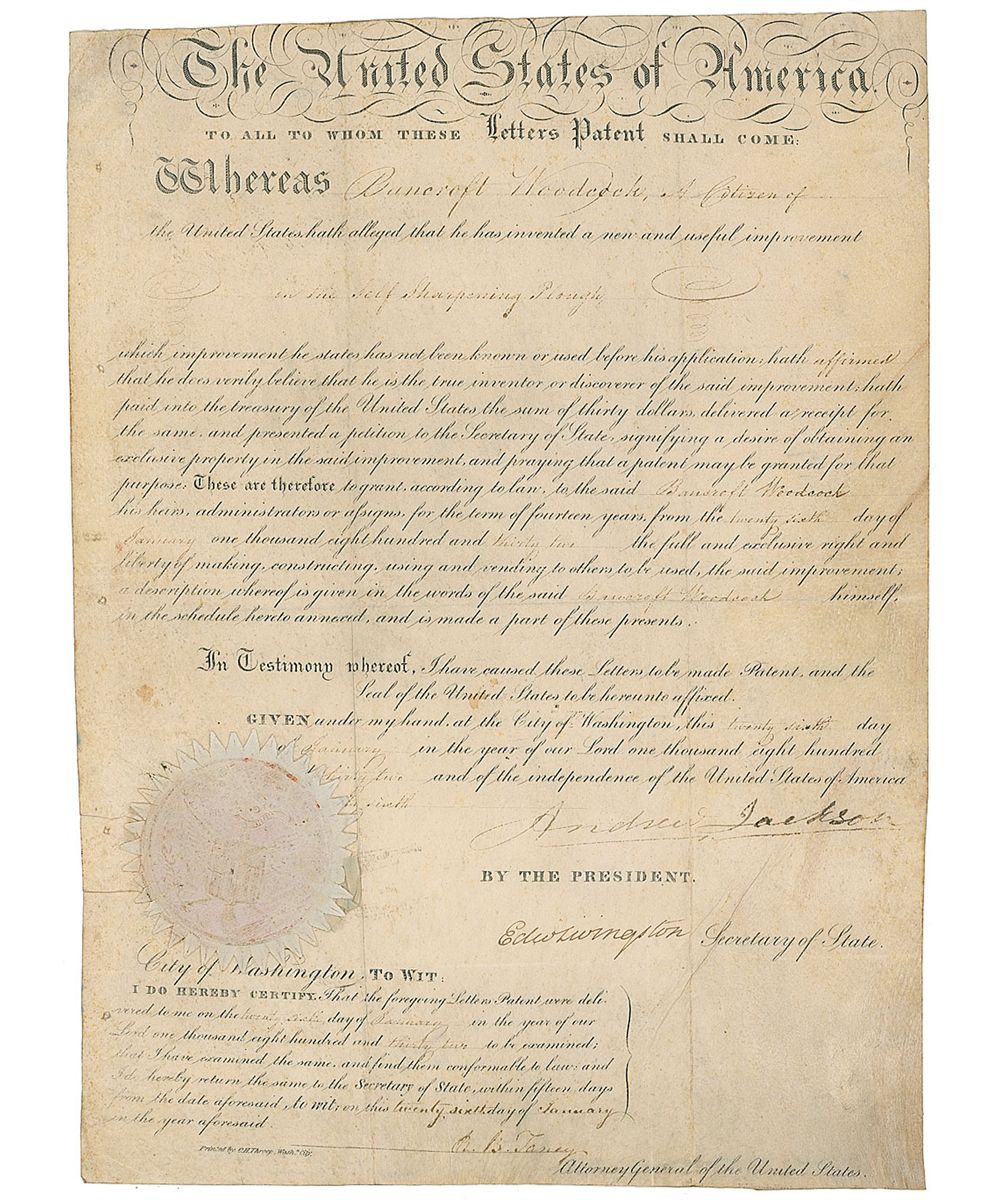 The United States of America.
TO ALL TO WHOM THESE Letters Patent SHALL COME:
Whereas Bancroft Woodcock, A Citizen of
the United States, hath alleged that he has invented a new and useful improvement
in the Self Sharpening Plough
which improvement he states has not been known or used before his application; hath affirmed
that he does verily believe that he is the true inventor or discoverer of the said improvement; hath
paid into the treasury of the United States the sum of thirty dollars, delivered a receipt for
the same, and presented a petition to the Secretary of State, signifying a desire of obtaining an
exclusive property in the said improvement, and praying that a patent may be granted for that
purpose: These are therefore to grant, according to law, to the said Bancroft Woodcock
his heirs, administrators or assigns, for the term of fourteen years, from the twenty sixth day of
January one thousand eight hundred and thirty two the full and exclusive right and
liberty of making, constructing, using and vending to others to be used, the said improvement;
a description whereof is given in the words of the said Bancroft Woodcock himself,
in the schedule hereto annexed, and is made a part of these presents.
In Testimony whereof, I have caused these Letters to be made Patent, and the
Seal of the United States to be hereunto affixed.
GIVEN under my hand, at the City of Washington, this twenty sixth day
of January in the year of our Lord one thousand eight hundred
thirty two and of the independence of the United States of America
sixth
Andrew Jackson
BY THE PRESIDENT.
Edw Livingston Secretary of State.
City of Washington, TO WIT:
I DO HEREBY CERTIFY, That the foregoing Letters Patent were deli-
vered to me on the twenty sixth day of January in the year of our
Lord one thousand eight hundred and thirty two to be examined;
that I have examined the same, and find them conformable to law; and
I do hereby return the same to the Secretary of State, within fifteen days
from the date aforesaid, to wit: on this twenty sixth day of January
in the year aforesaid.
R. B. Taney
Printed by C.H.Throop, Washn. City.
Attorney General of the United States.